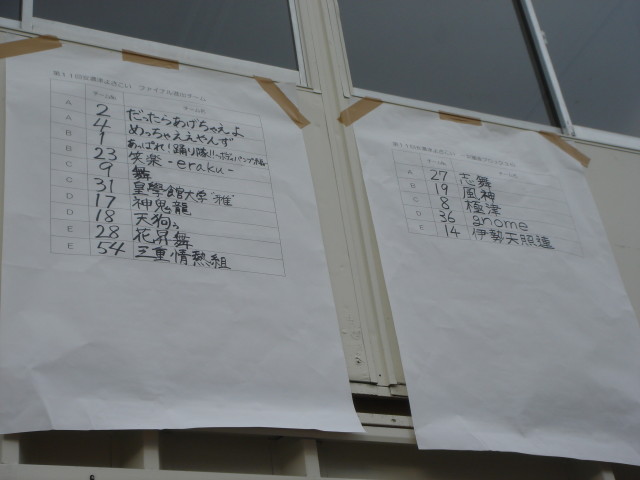 ファイナル進出チーム
チームNo チーム名
A 2 だったらあげちゃえよ
A 4 めっちゃええやんず
B 1 あばれ!踊り隊!!
B 23 笑楽-eraku-
C 9 舞
C 31 皇學館大学"雅"
D 17 神鬼龍
D 18 天狗
E 28 花昇舞
E 54 三重情熱組
チーム名
A 27 志舞
B 19 風神
C 8 極津
D 36 gnome
E 14 伊勢天照連